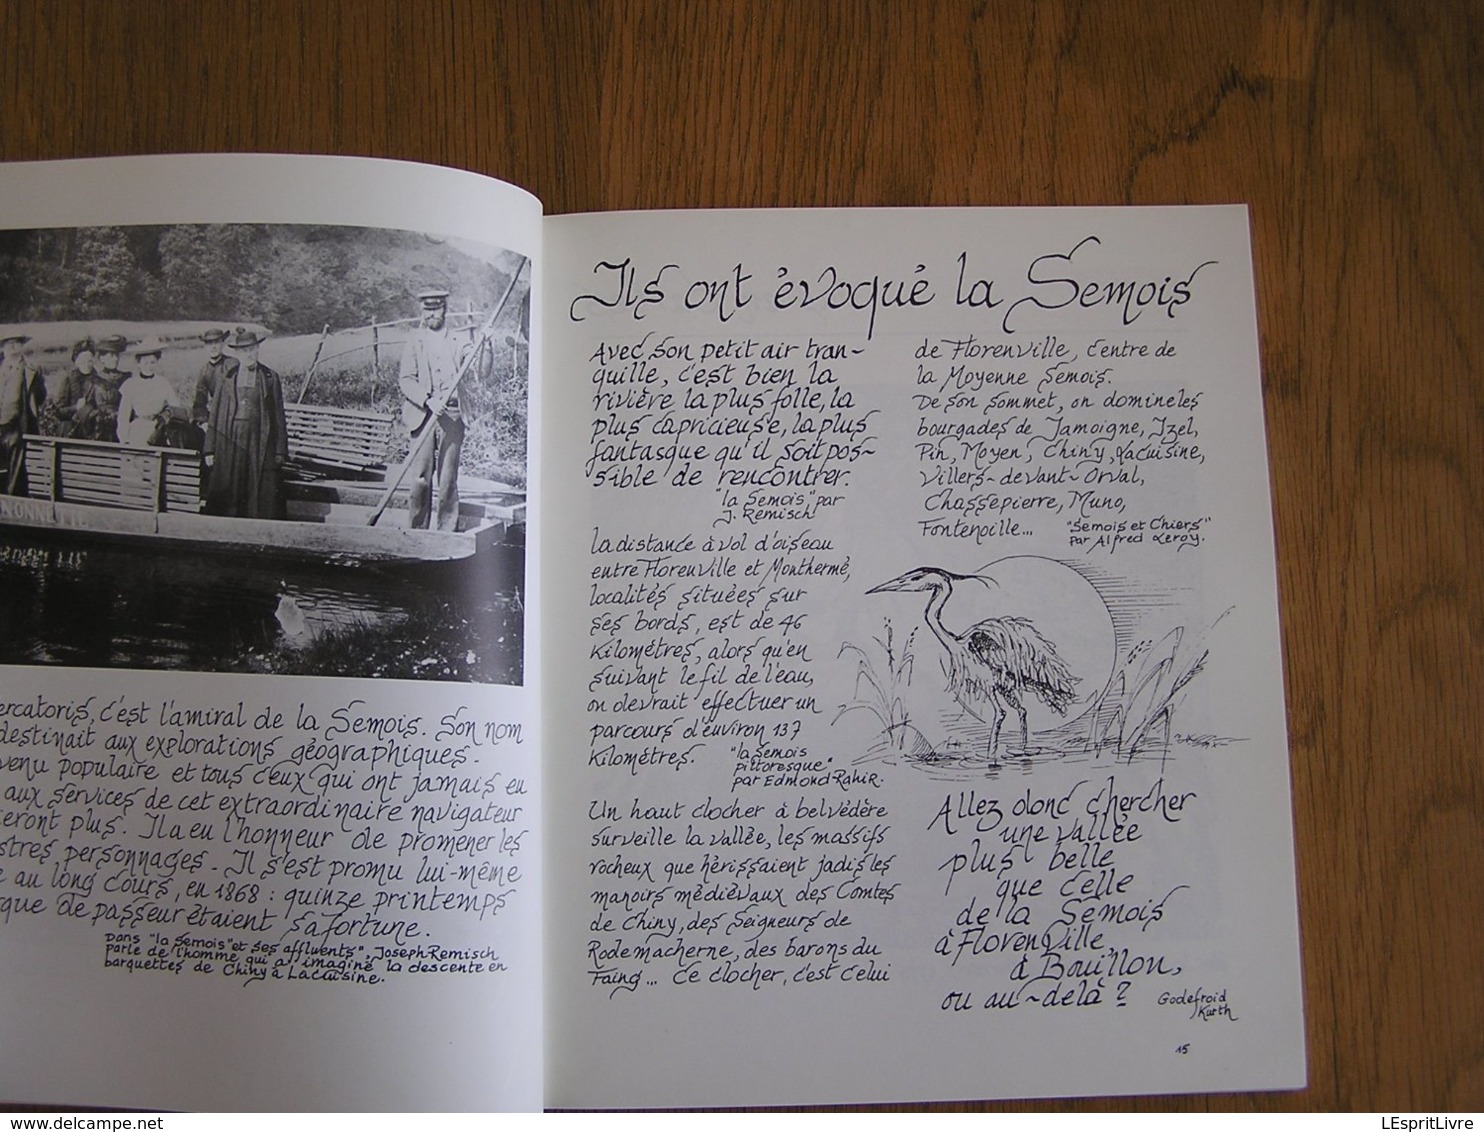 ercatoris, c'est l'amiral de la Semois. Son nom
destinait aux explorations géographiques.
venu populaire et tous ceux qui ont jamais eu
aux services de cet extraordinaire navigateur
eront plus. Il a eu l'honneur de promener les
stres personnages. Il s'est promu lui-même
e au long cours, en 1868 : quinze printemps
rque de passeur étaient sa fortune.
Dans "la Semois et ses affluents", Joseph Remisch
parle de l'homme qui a imaginé la descente en
barquettes de Chiny à Lacuisine.
Ils ont évoqué la Semois
Avec son petit air tran~
quille, c'est bien la
rivière la plus folle, la
plus capricieuse, la plus
fantasque qu'il soit pos~
sible de rencontrer.
"la Semois" par
J. Remisch
la distance à vol d'oiseau
entre Florenville et Monthermé,
localités situées sur
ses bords, est de 46
kilomètres, alors qu'en
suivant le fil de l'eau,
on devrait effectuer un
parcours d'environ 137
kilomètres.
"la Semois
pittoresque"
par Edmond Rahir.
Un haut clocher à belvédère
surveille la vallée, les massifs
rocheux que hérissaient jadis les
manoirs médiévaux des Comtes
de Chiny, des Seigneurs de
Rodemacherne, des barons du
Faing... Ce clocher, c'est celui
de Florenville, centre de
la Moyenne Semois.
De son sommet, on domine les
bourgades de Jamoigne, Izel,
Pin, Moyen, Chiny, Lacuisine,
Villers~devant~Orval,
Chassepierre, Muno,
Fontenoille...
"Semois et Chiers"
par Alfred Leroy.
Allez donc chercher
une vallée
plus belle
que celle
de la Semois
à Florenville,
à Bouillon,
ou au~delà ?
Godefroid
Kurth
15
LEspritLivre